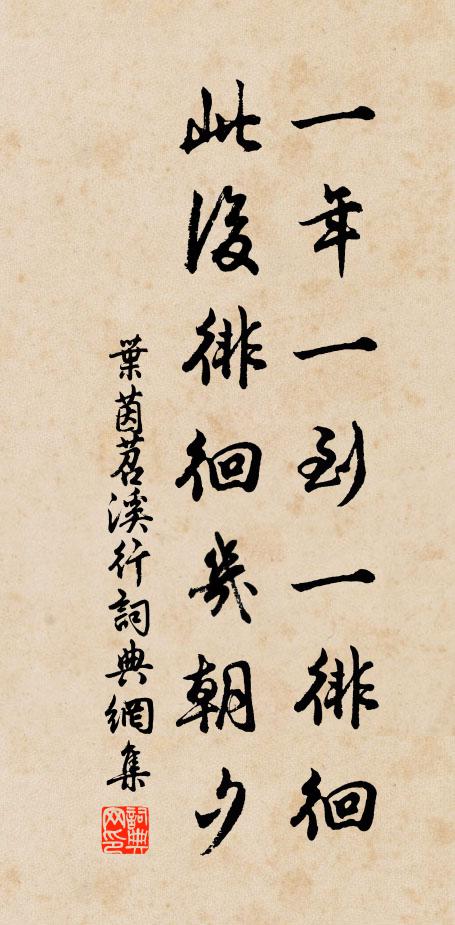 一年一到一徘徊
此後徘徊幾朝夕
葉茵苕溪行詞典網集
詞典网印